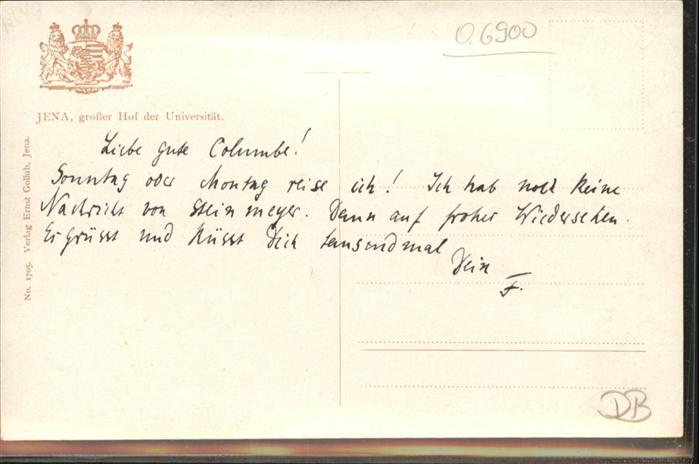 0.6900
JENA, großer Hof der Universität.
No. 1705. Verlag Ernst Gollub, Jena.
Liebe gute Columbe!
Sonntag oder Montag reise ich! Ich hab noch keine
Nachricht von Steinmeyer. Dann auf frohes Wiedersehen.
Es grüsst und küsst Dich tausendmal
Dein
F.
DB